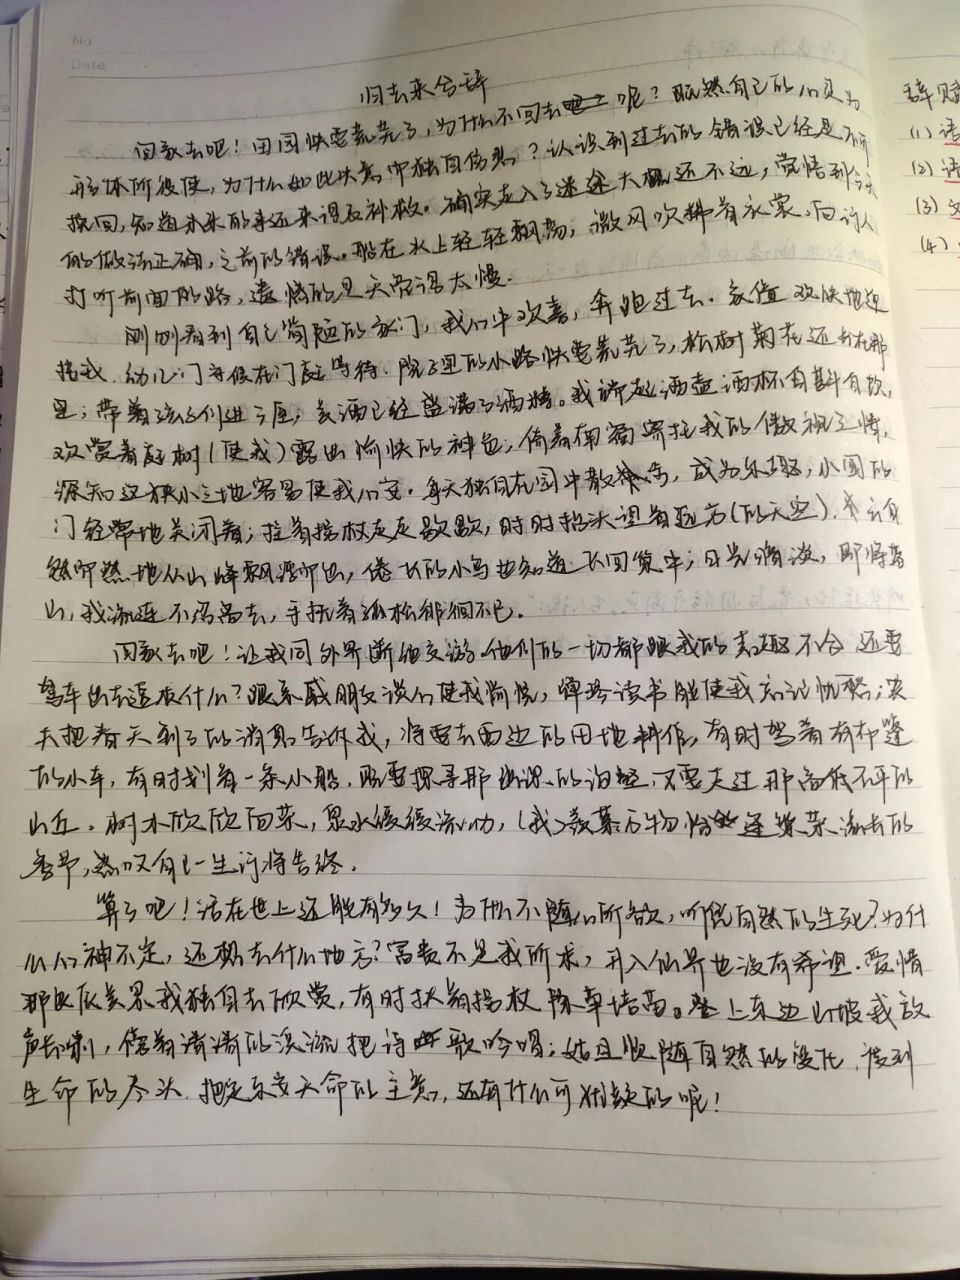 No
Date
归去来兮辞
回家去吧！田园快要荒芜了，为什么不回去呢？既然自己的心灵为
形体所役使，为什么如此失意而独自伤悲？认识到过去的错误已经是不可
挽回，知道未来的事还来得及补救。确实走入了迷途大概还不远，觉悟到今天
的做法正确，之前的错误。船在水上轻轻飘荡，微风吹拂着衣裳，向行人
打听前面的路，遗憾的是天亮得太慢。
刚刚看到自己简陋的家门，我心中欢喜，奔跑过去。家僮欢快地迎
接我，幼儿们守候在门庭等待。院子里的小路快要荒芜了，松树菊花还长在那
里；带着孩子们进了屋，美酒已经盛满了酒樽。我端起酒壶酒杯自斟自饮，
欢赏着庭树（使我）露出愉快的神色；倚着南窗寄托我的傲视之情，
深知这狭小之地容易使我心安。每天独自在园中散步，成为乐趣，小园的
门经常地关闭着；拄着拐杖走走歇歇，时时抬头望着远方（的天空），云自
然而然地从山峰飘浮而出，倦飞的小鸟也知道飞回巢中；日光暗淡，即将落
山，我流连不忍离去，手抚着孤松徘徊不已。
回家去吧！让我同外界断绝交游。他们的一切都跟我的志趣不合，还要
驾车出去追求什么？跟亲戚朋友谈心使我愉悦，弹琴读书能使我忘记忧愁；农
夫把春天到了的消息告诉我，将要去西边的田地耕作。有时驾着有布篷
的小车，有时划着一条小船，既要探寻那幽深的沟壑，又要走过那高低不平的
山丘。树木欣欣向荣，泉水缓缓流动，（我）羡慕万物恰逢繁荣滋长的
季节，感叹自己一生行将告终。
算了吧！活在世上还能有多久！为什么不随心所欲，听凭自然的生死？为什
么心神不定，还想去什么地方？富贵不是我所求，升入仙界也没有希望。爱惜
那良辰美景我独自去欣赏，有时扶着拐杖除草培苗。登上东边山坡我放
声长啸，傍着清清的溪流把诗歌吟唱；姑且顺随自然的变化，度到
生命的尽头。把定乐安天命的主意，还有什么可犹疑的呢！
辞赋
(1)
(2)
(3)
(4)